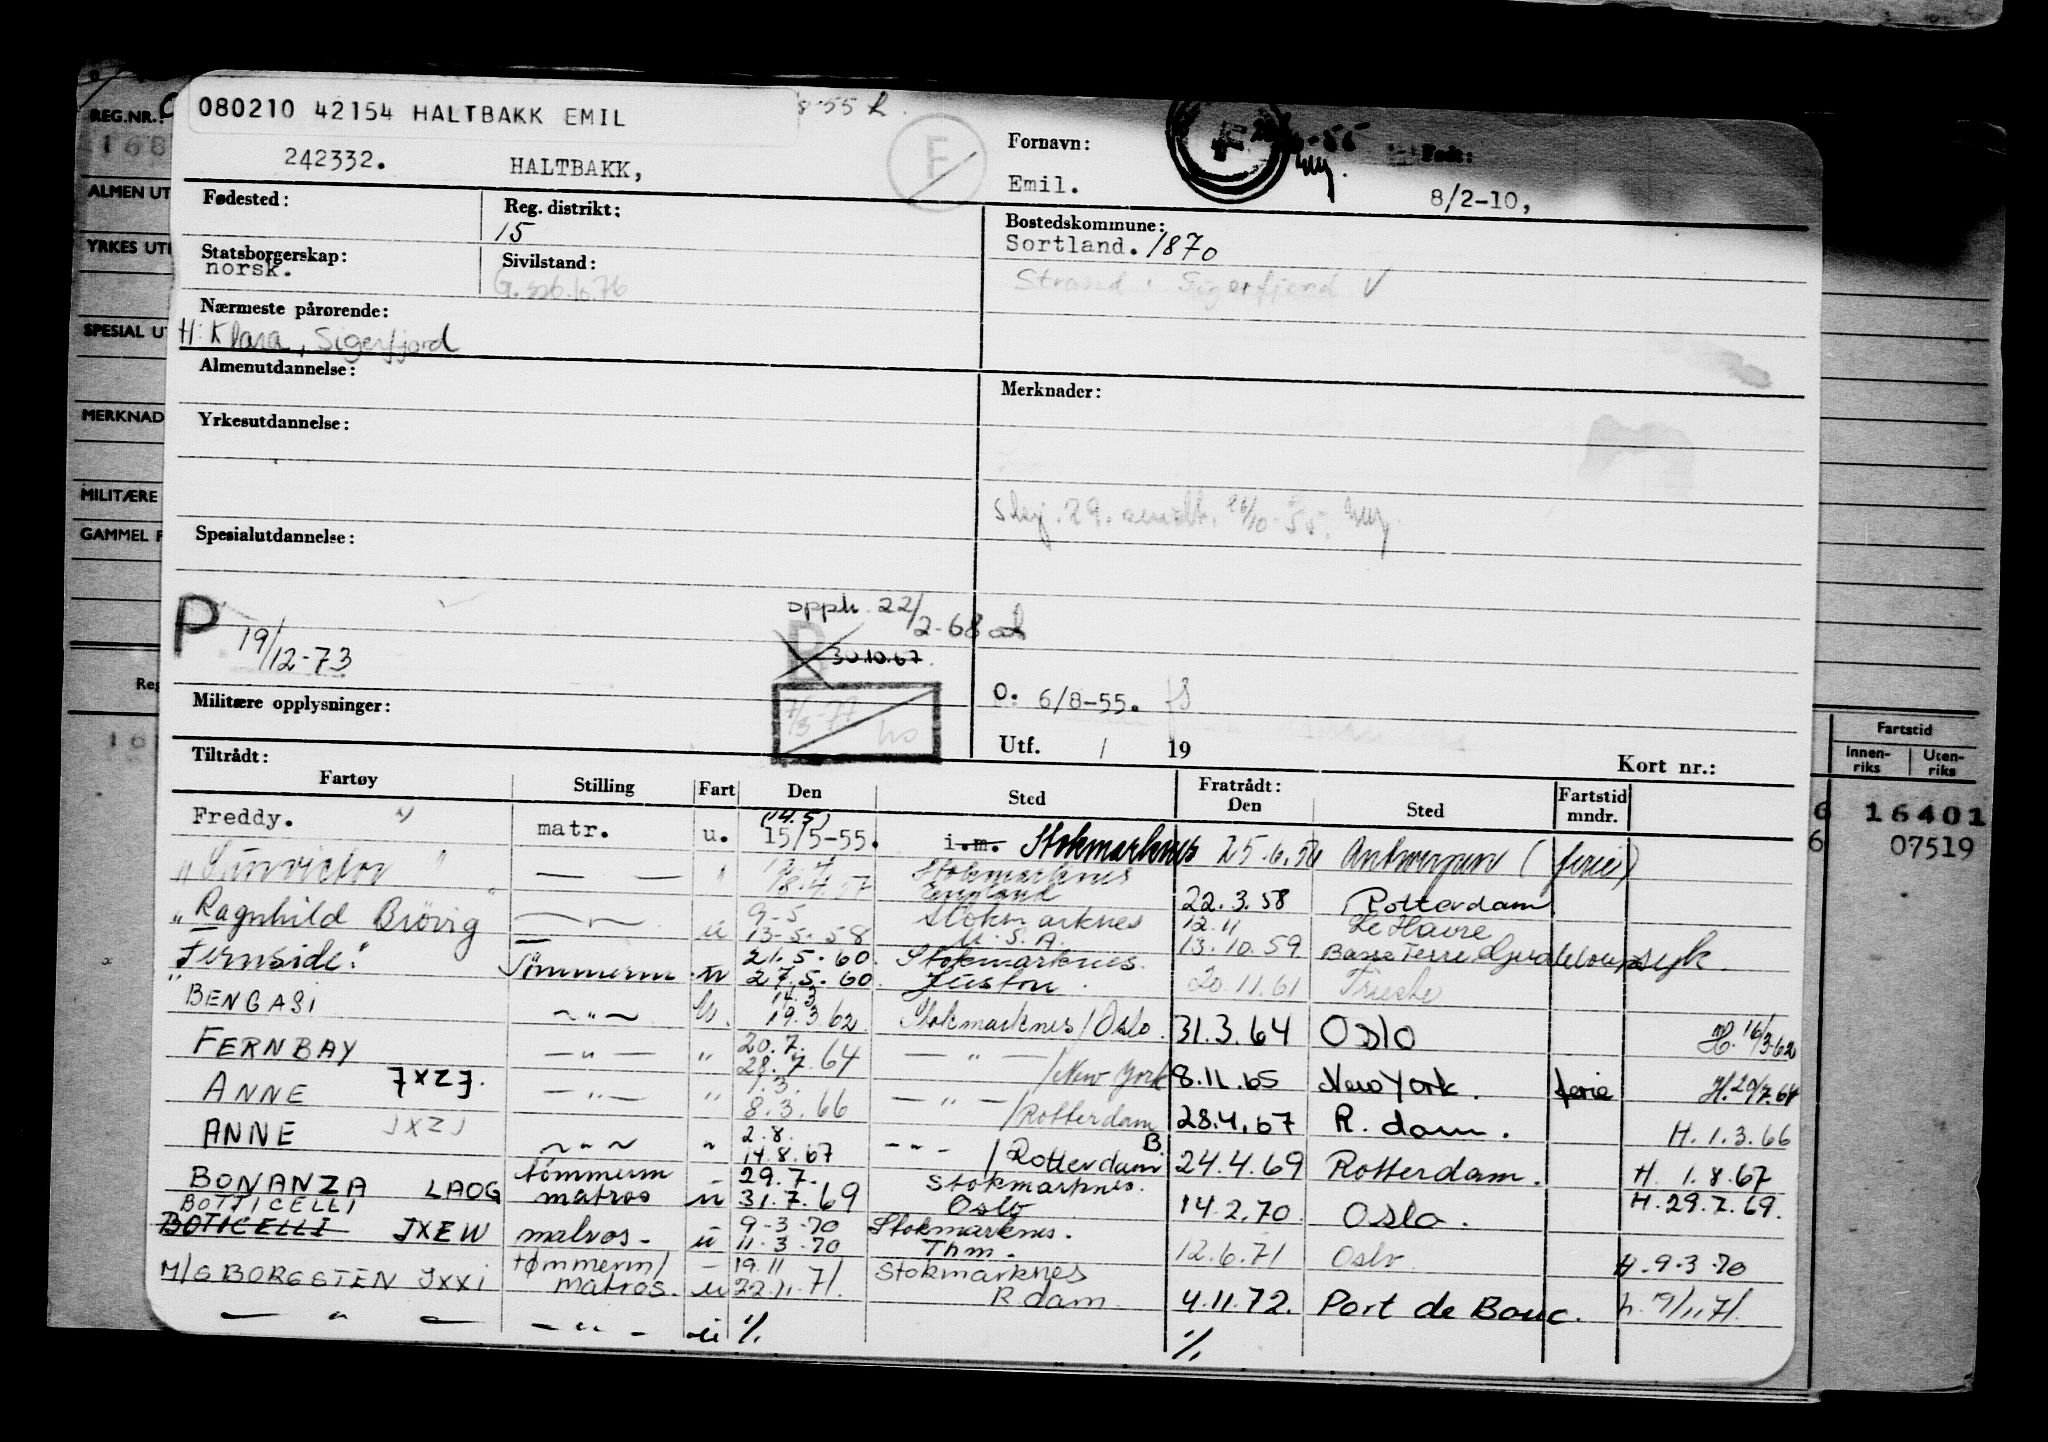 080210 42154 HALTBAKK EMIL
242332. HALTBAKK,
Fornavn:
Emil.
Født:
8/2-10,
REG.NR.:
168
ALMEN UT
YRKES UT
SPESIAL UT
MERKNAD
MILITÆRE
GAMMEL F
Reg
Fødested:
Reg. distrikt:
15
Bostedskommune:
Sortland. 1870
Strand, Sigerfjord V
Statsborgerskap:
norsk.
Sivilstand:
Nærmeste pårørende:
H: Klara, Sigerfjord
Almenutdannelse:
Merknader:
Yrkesutdannelse:
Spesialutdannelse:
P 19/12-73
opph. 22/2-68
30.10.67
O: 6/8-55.
Militære opplysninger:
Utf. / 19
Kort nr.:
Tiltrådt:
Fartøy Stilling Fart Den Sted
Fratrådt:
Den Sted Fartstid mndr.
Fartstid
Innen-riks Uten-riks
6 16401
6 07519
Freddy. " matr. u. (14.5) 15/5-55. i.m. Stokmarknes 25.6.56 Antwerpen (ferie)
"Sunvictor" — — " 18.4.57 Stokmarknes England 22.3.58 Rotterdam
"Ragnhild Brøvig" u 9-5 13-5-58 Stokmarknes U.S.A. 12.11 Le Havre
13.10.59 Basse Terre Guadeloupe syk.
"Fernside." Tømmerm. u 21.5.60. 27.5.60 Stokmarknes. 20.11.61 Trieste
BENGASI ~ " ~ u. 14.3 19.3 62 Stokmarknes/Oslo. 31.3.64 OSLO H. 16/3-62
FERNBAY — " — " 20.7. 28.7.64 — " — /New York 8.11.65 New York. ferie H. 20/7.64
ANNE JXZJ. — " — " 1.3. 8.3.66 — " — /Rotterdam 28.4.67 R. dam. H. 1.3.66
ANNE JXZJ ~ " ~ " 2.8. 14.8.67 — " — / Rotterdam B 24.4.69 Rotterdam. H. 1.8.67
BONANZA LAOG tømmerm matros u 29.7. 31.7.69 Stokmarknes. Oslo 14.2.70 Oslo. H. 29.7.69.
BOTTICELLI
BOTICELLI JXEW matros - u 9-3-70 11-3-70 Stokmarknes. Thm. 12.6.71 Oslo H. 9.3.70
M/S BORGSTEN JXXI tømmerm/ matros. u 19.11 22.11.71. Stokmarknes R dam. 4.11.72. Port de Bouc. h. 19/11.71.
— " — — " — u 1/. 1/.